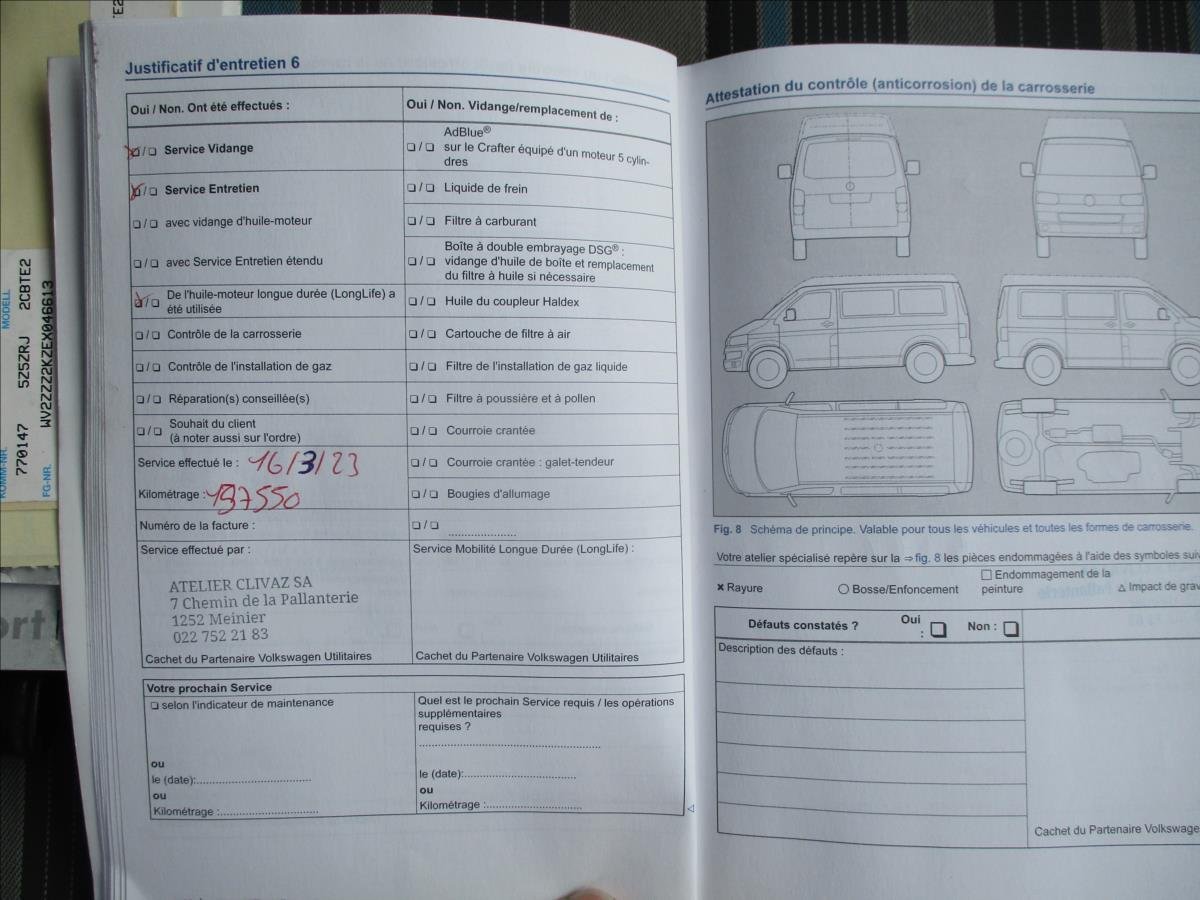 Justificatif d'entretien 6
Oui / Non. Ont été effectués :
❏/❏ Service Vidange
❏/❏ Service Entretien
❏/❏ avec vidange d'huile-moteur
❏/❏ avec Service Entretien étendu
❏/❏ De l'huile-moteur longue durée (LongLife) a
été utilisée
❏/❏ Contrôle de la carrosserie
❏/❏ Contrôle de l'installation de gaz
❏/❏ Réparation(s) conseillée(s)
❏/❏ Souhait du client
(à noter aussi sur l'ordre)
Service effectué le : 16/3/23
Kilométrage : 197550
Numéro de la facture :
Service effectué par :
ATELIER CLIVAZ SA
7 Chemin de la Pallanterie
1252 Meinier
022 752 21 83
Cachet du Partenaire Volkswagen Utilitaires
Oui / Non. Vidange/remplacement de :
AdBlue®
❏/❏ sur le Crafter équipé d'un moteur 5 cylin-
dres
❏/❏ Liquide de frein
❏/❏ Filtre à carburant
Boîte à double embrayage DSG® :
❏/❏ vidange d'huile de boîte et remplacement
du filtre à huile si nécessaire
❏/❏ Huile du coupleur Haldex
❏/❏ Cartouche de filtre à air
❏/❏ Filtre de l'installation de gaz liquide
❏/❏ Filtre à poussière et à pollen
❏/❏ Courroie crantée
❏/❏ Courroie crantée : galet-tendeur
❏/❏ Bougies d'allumage
❏/❏ ......................
Service Mobilité Longue Durée (LongLife) :
Cachet du Partenaire Volkswagen Utilitaires
Votre prochain Service
❏ selon l'indicateur de maintenance
ou
le (date):.................................
ou
Kilométrage :............................
Quel est le prochain Service requis / les opérations
supplémentaires
requises ?
......................................................
le (date):.................................
ou
Kilométrage :............................
Attestation du contrôle (anticorrosion) de la carrosserie
Fig. 8 Schéma de principe. Valable pour tous les véhicules et toutes les formes de carrosserie.
Votre atelier spécialisé repère sur la ⇒ fig. 8 les pièces endommagées à l'aide des symboles suiv
× Rayure
○ Bosse/Enfoncement
□ Endommagement de la
peinture
△ Impact de grav
Défauts constatés ?
Oui
: ❏
Non : ❏
Description des défauts :
Cachet du Partenaire Volkswage
KOMM-NR.
770147
5Z5ZRJ
MODELL
2CBTE2
FG-NR.
WV2ZZZ2KZEX046613
ort